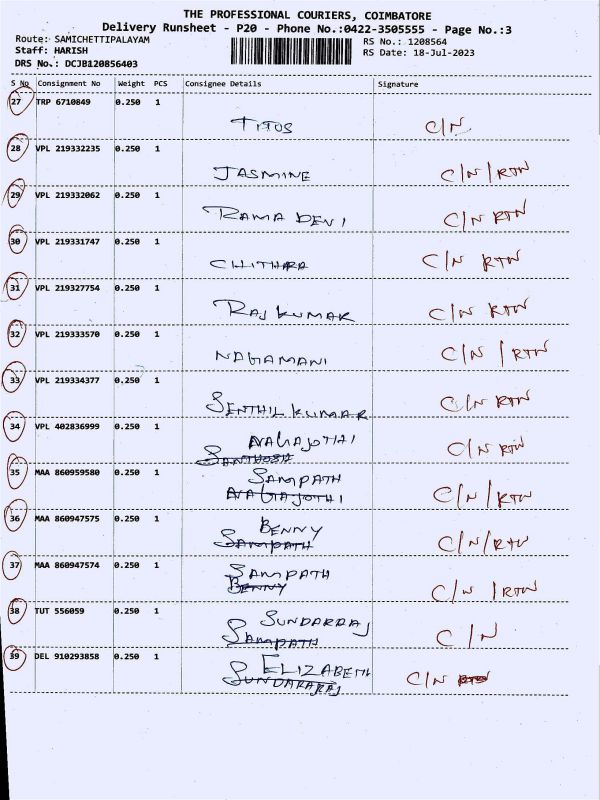 THE PROFESSIONAL COURIERS, COIMBATORE
Delivery Runsheet - P20 - Phone No.:0422-3505555 - Page No.:3
Route: SAMICHETTIPALAYAM
RS No.: 1208564
Staff: HARISH
RS Date: 18-Jul-2023
DRS No.: DCJB120856403
S No Consignment No Weight PCS Consignee Details Signature
27 TRP 6710849 0.250 1
TITOS C/N
28 VPL 219332235 0.250 1
JASMINE C/N/RTN
29 VPL 219332062 0.250 1
RAMA DEVI C/N RTN
30 VPL 219331747 0.250 1
CHITHRA C/N RTN
31 VPL 219327754 0.250 1
RAJKUMAR C/N RTN
32 VPL 219333570 0.250 1
NAGAMANI C/N/RTN
33 VPL 219334377 0.250 1
SENTHIL KUMAR C/N RTN
34 VPL 402836999 0.250 1
NAGAJOTHI C/N RTN
SANTHOSH
35 MAA 860959580 0.250 1
SAMPATH
NAGAJOTHI C/N/RTN
36 MAA 860947575 0.250 1
BENNY
SAMPATH C/N/RTN
37 MAA 860947574 0.250 1
SAMPATH
BENNY C/N/RTN
38 TUT 556059 0.250 1
SUNDARRAJ
SAMPATH C/N
39 DEL 910293858 0.250 1
ELIZABETH
SUNDARARAJ C/N RTN